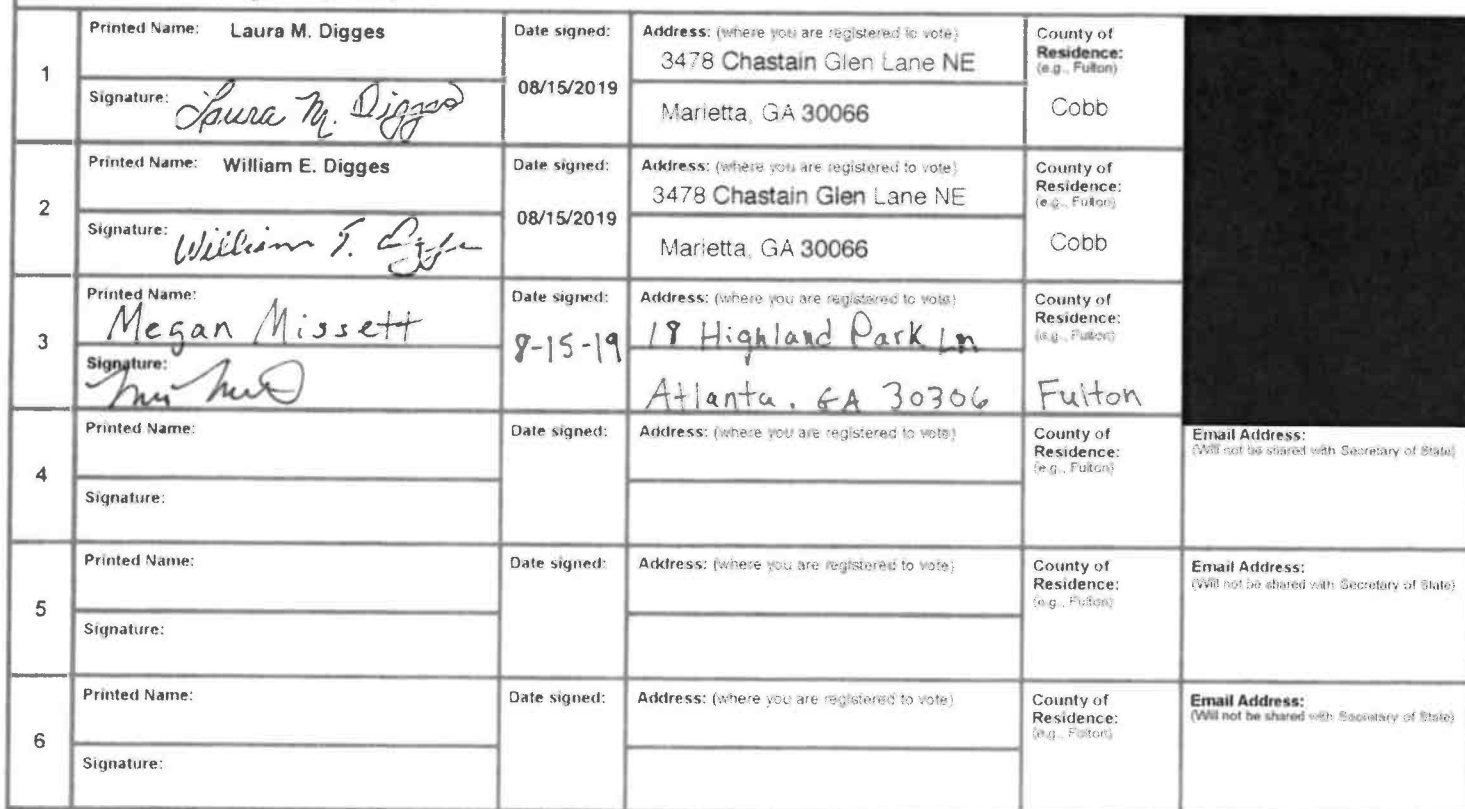 1
Printed Name: Laura M. Digges
Signature: Laura M. Digges
Date signed:
08/15/2019
Address: (where you are registered to vote)
3478 Chastain Glen Lane NE
Marietta, GA 30066
County of
Residence:
(e.g., Fulton)
Cobb
2
Printed Name: William E. Digges
Signature: William
Date signed:
08/15/2019
Address: (where you are registered to vote)
3478 Chastain Glen Lane NE
Marietta, GA 30066
County of
Residence:
(e.g., Fulton)
Cobb
3
Printed Name:
Megan Missett
Signature:
Date signed:
8-15-19
Address: (where you are registered to vote)
18 Highland Park Ln
Atlanta. GA 30306
County of
Residence:
(e.g., Fulton)
Fulton
4
Printed Name:
Signature:
Date signed:
Address: (where you are registered to vote)
County of
Residence:
(e.g., Fulton)
Email Address:
(Will not be shared with Secretary of State)
5
Printed Name:
Signature:
Date signed:
Address: (where you are registered to vote)
County of
Residence:
(e.g., Fulton)
Email Address:
(Will not be shared with Secretary of State)
6
Printed Name:
Signature:
Date signed:
Address: (where you are registered to vote)
County of
Residence:
(e.g., Fulton)
Email Address:
(Will not be shared with Secretary of State)